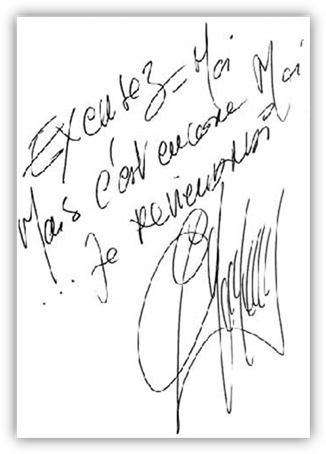 Excusez-Moi
Mais c'est encore Moi
... Je reviendrai